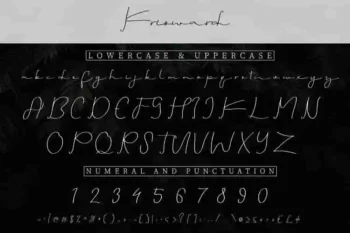 LOWERCASE & UPPERCASE
a b c d e f g h i j k l m n o p q r s t u v w x y z
A B C D E F G H I J K L M N
O P Q R S T U V W X Y Z
NUMERAL AND PUNCTUATION
1 2 3 4 5 6 7 8 9 0